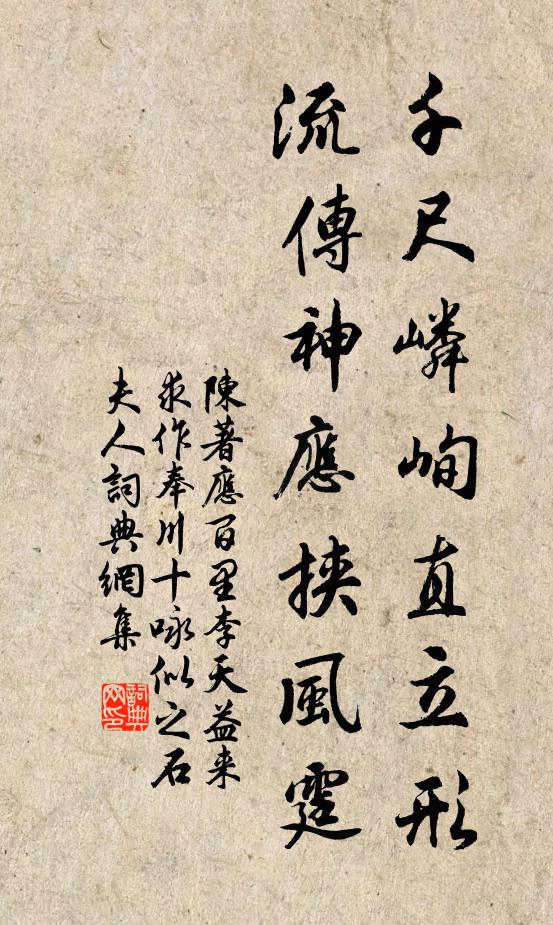 千尺嶙峋直立形
流傳神應挾風霆
陳著應百里李天益来
求作奉川十咏似之石
夫人詞典網集
詞典
网印